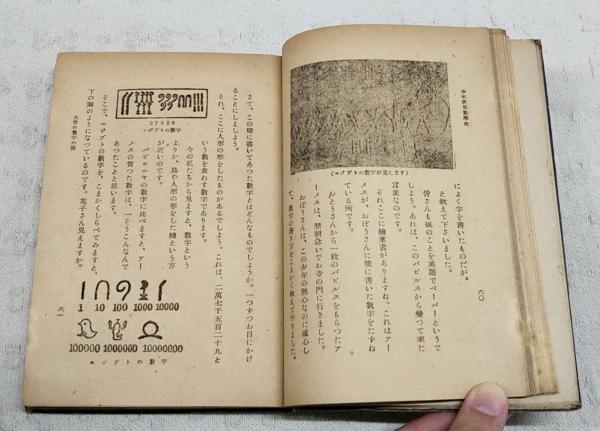 少年世界數學史
六〇
(エジプトの數字が見えます)
によく字を書いたものだが。
と教えて下さいました。
皆さんも紙のことを英語でペーパーというで
しよう。あれは、このパピルスから變つて來た
言葉なのです。
それここに繪葉書がありますね。これはアー
メスが、おぼうさんに壁に書いた數字をたずね
ている所です。
おとうさんから一枚のパピルスをもらつたア
ーメスは、翌朝急いでお寺の門に行きました。
おぼうさんは、この少年の熱心なのに感心し
て、數字の書き方をこまかく教えてやりました。
さて、この壁に書いてあつた數字とはどんなものでしようか。一つずつお目にかけ
ることにしましよう。
それ、ここに人形の形をしたものがあるでしよう。これは、二萬七千五百二十九と
いう數を表わす數字であります。
今の私たちから見ますと、數字という
よりか、鳥や人形の形をした繪という方
が近いのです。
バビロニヤの數字に比べますと、アー
メスの習つた數字は、一そうこんなんで
あつたことと思います。
そこで、エジプトの數字を、こまかくしらべてみますと、
下の圖のようになつているのです。花子さん見えますか。
27529
エジプトの數字
1 10 100 1000 10000
100000 1000000 10000000
エジプトの數字
大昔の數字の話
六一